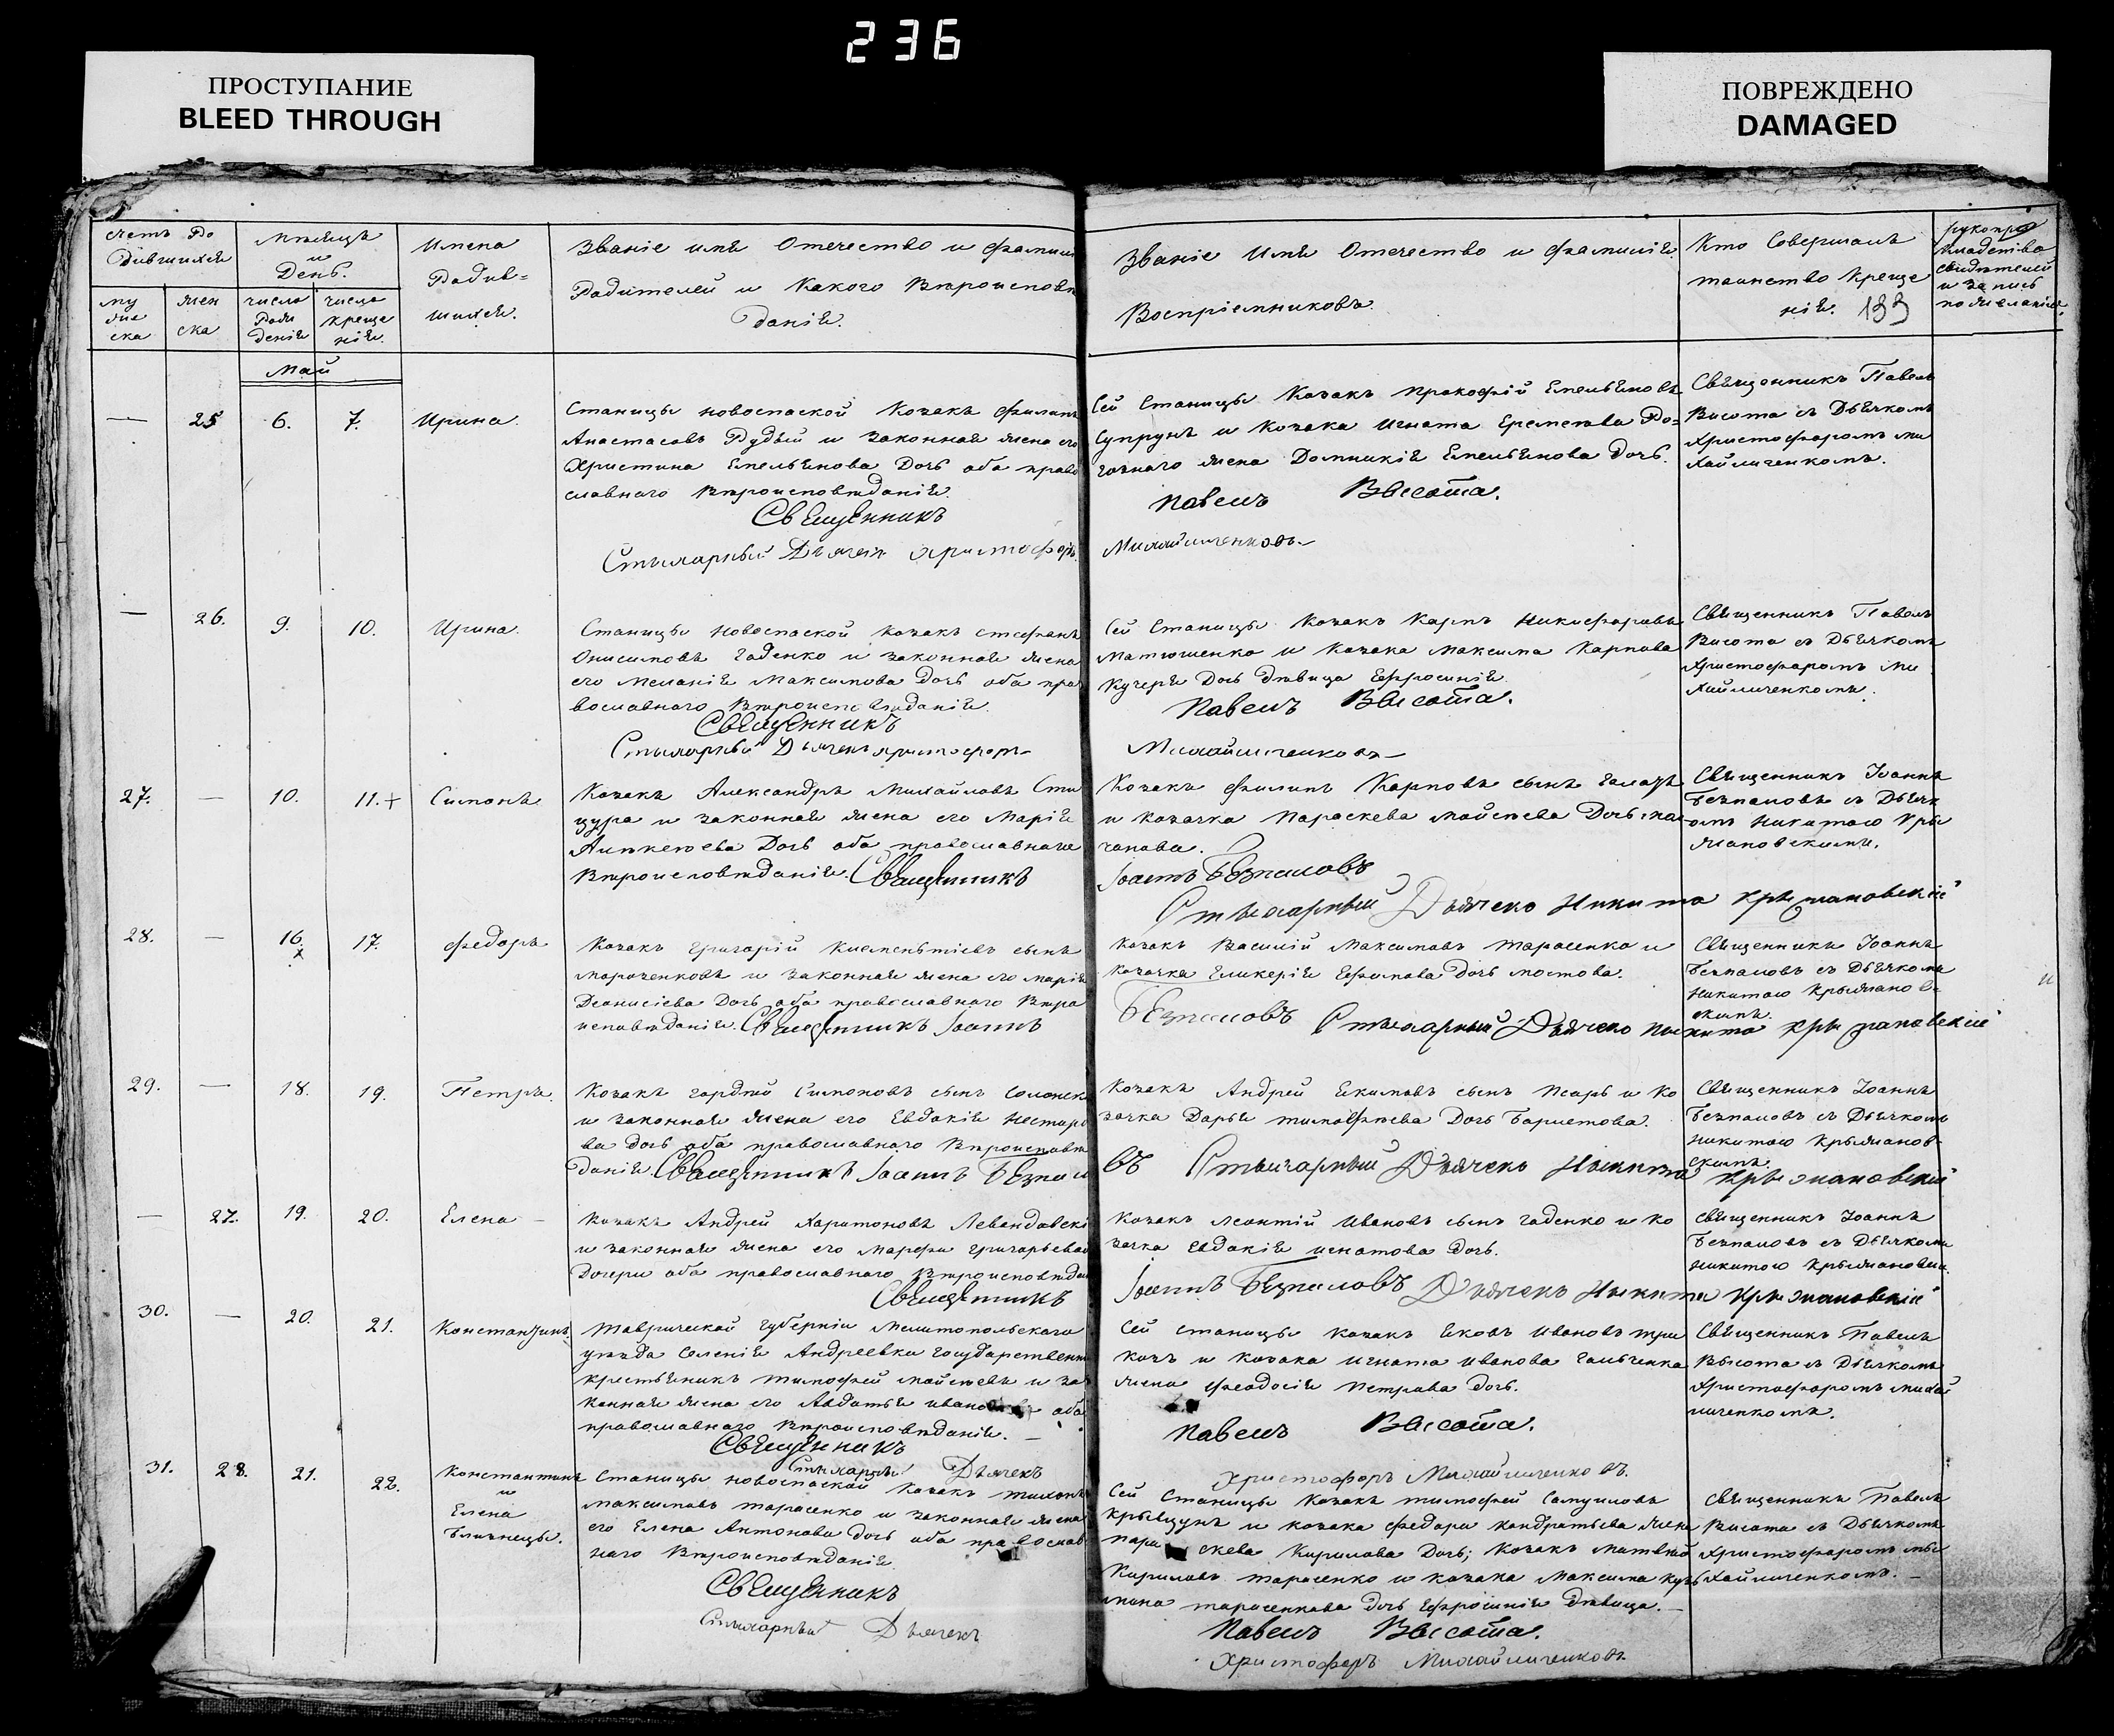 236
ПРОСТУПАНИЕ
BLEED THROUGH
ПОВРЕЖДЕНО
DAMAGED
Счетъ Ро
дившихся
му
же
ска
жен
ска
Мѣсяцъ
и
День.
число
рож
денія
число
креще
нія
Имена
Родив=
шихся.
Званіе имя Отечество и фамилія
Родителей и какого Вѣроисповѣ
данія.
Званіе Имя Отечество и фамилія
Воспріемниковъ.
Кто Совершалъ
таинство Креще
нія. 133
свидѣтелей
и запись
по желанію.
Май
— 25 6. 7. Ирина.
Станицы Новоспаской Козакъ Филипъ
Анастасовъ Рудый и законная жена его
Христина Емельянова Дочь оба право
славнаго Вѣроисповѣданія.
Священникъ
Стихарный Дьячекъ Христофоръ
Сей Станицы Козакъ Прокофій Емельяновъ
Супрунъ и Козака Игната Еремѣева Ро=
гознаго жена Домникія Емельянова дочь.
Павелъ Высота.
Михайличенковъ
Священникъ Павелъ
Высота съ Дьячкомъ
Христофоромъ Ми
хайличенкомъ.
— 26. 9. 10. Ирина.
Станицы Новоспаской козакъ Стефанъ
Онисимовъ Гаденко и законная жена
его Меланія Максимова дочь оба пра
вославнаго Вѣроисповѣданія.
Священникъ
Стихарный Дьячекъ Христофоръ
Сей Станицы Козакъ Карпъ Никифоровъ
Матюшенко и Козака Максима Карпова
Кучеря Дочь Дѣвица Ефросинія.
Павелъ Высота.
Михайличенковъ
Священникъ Павелъ
Высота съ Дьячкомъ
Христофоромъ Ми
хайличенкомъ.
27. — 10. 11.+ Симонъ.
Козакъ Александръ Михайловъ Сти
цура и законная жена его Марія
Алѣксѣева Дочь оба православнаго
Вѣроисповѣданія. Священникъ
Козакъ Филипъ Карповъ сынъ
и козачка Параскева Мойсѣева Дочь
Іоаннъ Безпаловъ
Стихарный Дьячекъ Никита Крыжановскій
Священникъ Іоаннъ
Безпаловъ съ Дьячк
омъ Никитою Кры
жановскимъ.
28. — 16. 17. Федоръ
Козакъ Григорій Клементіевъ сынъ
Мороченковъ и законная жена его Марія
Деонисіева Дочь оба православнаго Вѣро
исповѣданія. Священникъ Іоаннъ
Козакъ Василій Максимовъ Тарасенко и
козачка Гликерія Ефимова дочь Мостова.
Безпаловъ Стихарный Дьячекъ Никита Крыжановскій
Священникъ Іоаннъ
Безпаловъ съ Дьячкомъ
Никитою Крыжанов-
скимъ.
29. — 18. 19. Петръ.
Козакъ Гордѣй Симоновъ сынъ
и законная жена его Евдокія Нестеро
ва дочь оба православнаго Вѣроисповѣ
данія. Священникъ Іоаннъ Безпало
Козакъ Андрей Екимовъ сынъ Псарь и Ко
зачка Дарья Тимофѣева Дочь
въ Стихарный Дьячекъ Никита Крыжановскій
Священникъ Іоаннъ
Безпаловъ съ Дьячкомъ
Никитою Крыжанов-
скимъ.
— 27. 19. 20. Елена —
Козакъ Андрей Харитоновъ Левандовскі
и законная жена его Марфы Григорьевой
Дочери оба православнаго Вѣроисповѣдан
Священникъ
Козакъ Леонтій Ивановъ сынъ Гаденко и ко
зачка Евдокія Игнатова Дочь.
Іоаннъ Безпаловъ Дьячекъ Никита Крыжановскій
Священникъ Іоаннъ
Безпаловъ съ Дьячкомъ
Никитою Крыжановск.
30. — 20. 21. Константинъ
Таврической Губерніи Мелитопольскаго
уѣзда Селенія Андреевки государствен
крестьянинъ Тимофей Мойсѣевъ и за
конная жена его Авдотья оба
православнаго Вѣроисповѣданія. —
Священникъ
Стихарный Дьячекъ
Сей Станицы козакъ Яковъ Ивановъ
и козака Игната Иванова Гальченка
жена Феодосія Петрова Дочь.
Павелъ Высота.
Христофоръ Михайличенковъ.
Священникъ Павелъ
Высота съ Дьячкомъ
Христофоромъ Михай
личенкомъ.
31. 28. 21. 22. Константинъ
и
Елена
Близнецы.
Станицы Новоспаской Козакъ Тихонъ
Максимовъ Тарасенко и законная жена
его Елена Антонова дочь оба православ
наго Вѣроисповѣданія
Священникъ
Стихарный Дьячекъ
Сей Станицы Козакъ Тимофей Самуиловъ
Крывцунъ и козака Федора Кондратьева жена
Пара скева Кирилова Дочь; Козакъ Матвѣй
Кириловъ Тарасенко и козака Максима Кузь
мина Тарасенкова дочь Ефросинія Дѣвица. —
Павелъ Высота.
Христофоръ Михайличенковъ.
Священникъ Павелъ
Высота съ Дьячкомъ
Христофоромъ Ми
хайличенкомъ. —